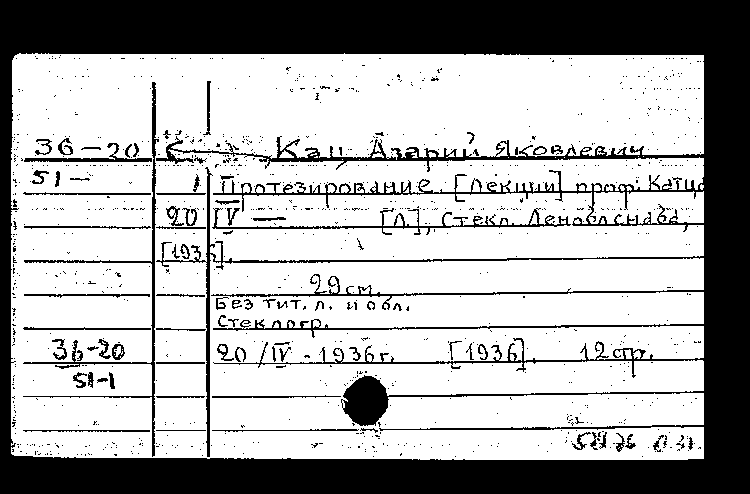 36-20 Кац, Азарий Яковлевич
51- 1 Протезирование. [Лекции] проф. Катца
20 IV — [Л.], Стекл. Леноблснаба,
[1936].
29 см.
Без тит. л. и обл.
Стеклогр.
36-20 20/IV-1936г. [1936]. 12 стр.
51-1